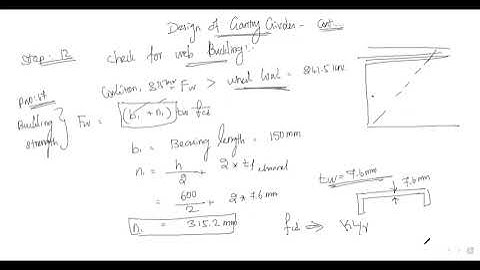 Design of Gantry Girder - Cont..
Step: 12 check for web Buckling:-
Condition, Fw > wheel load = 841.5 kN
Buckling strength } Fw = (b1 + n1) tw fcd
b1 = Bearing length = 150mm
n1 = h/2 + 2 * tf channel
= 600/2 + 2 * 7.6mm
n1 = 315.2 mm
tw = 7.6mm
7.6mm
fcd ⇒ KL/r